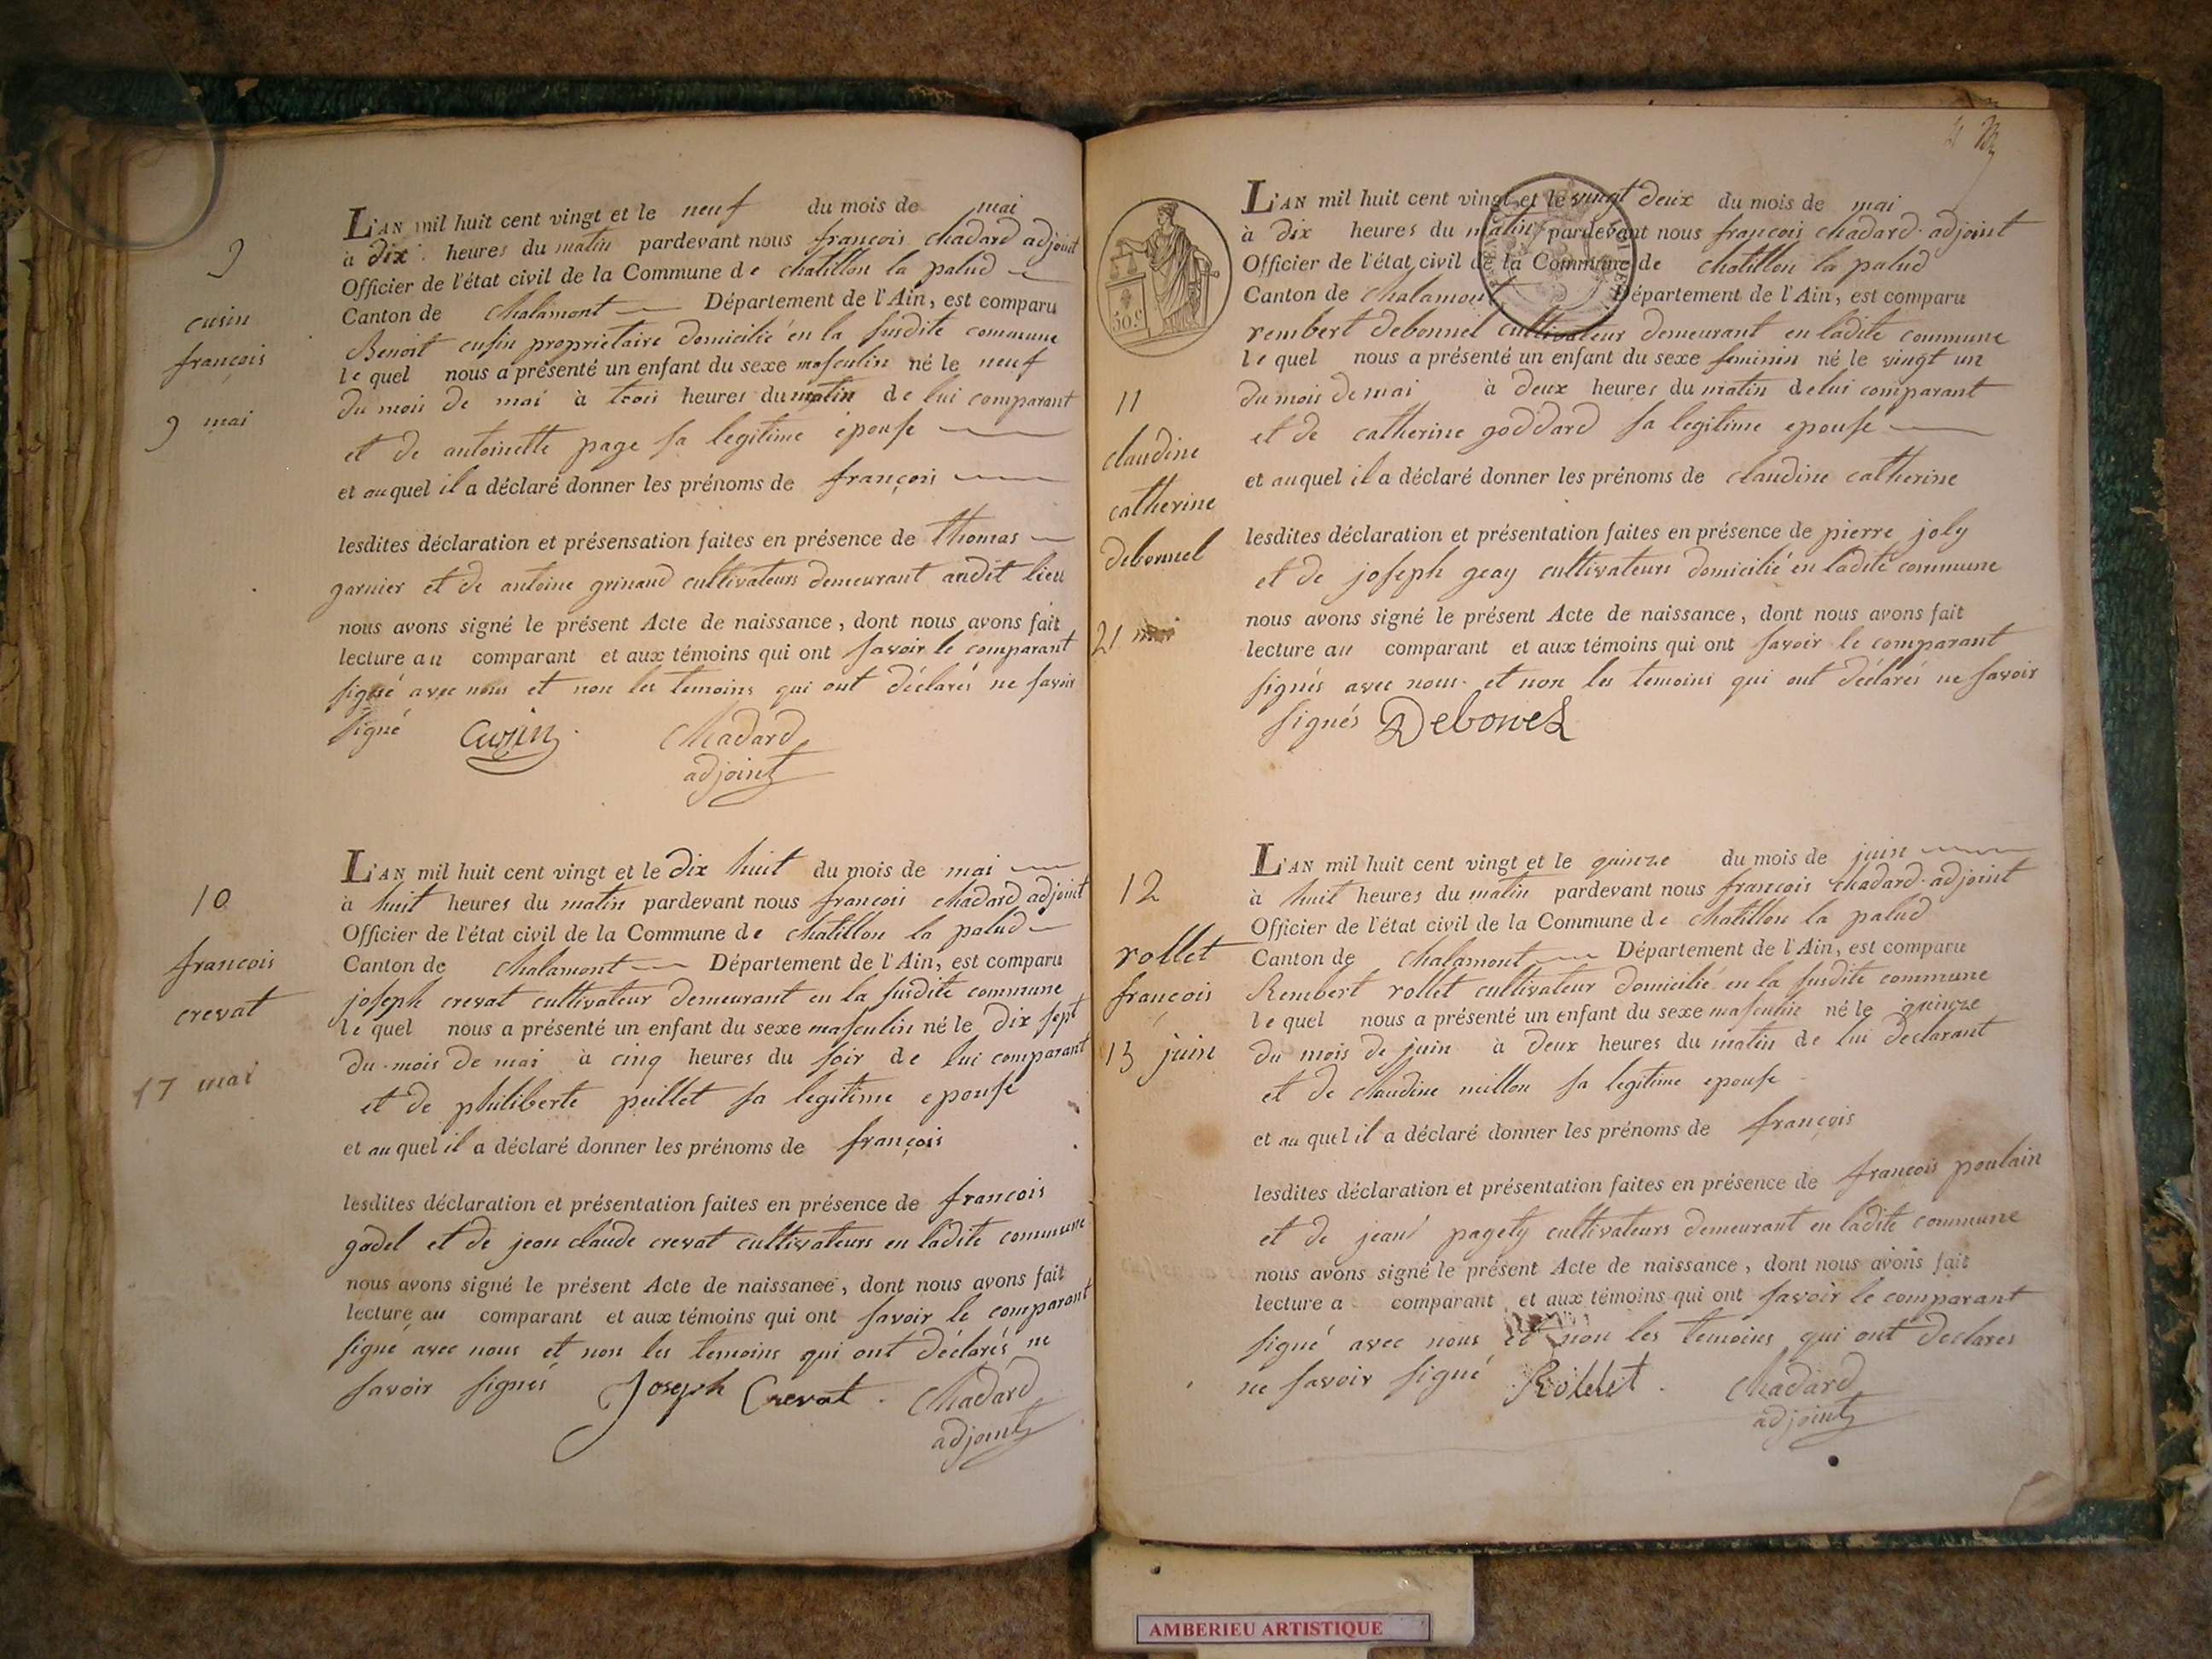 9
cusin
françois
9 mai
L'AN mil huit cent vingt et le neuf du mois de mai
à dix heures du matin pardevant nous françois chadard adjoint
Officier de l'état civil de la Commune de chatillon la palud
Canton de chalamont Département de l'Ain, est comparu
Benoit cusin proprietaire domicilié en la susdite commune
lequel nous a présenté un enfant du sexe masculin né le neuf
du mois de mai à trois heures du matin de lui comparant
et de antoinette page sa legitime epouse
et auquel il a déclaré donner les prénoms de françois
lesdites déclaration et présensation faites en présence de thomas
garnier et de antoine grinaud cultivateurs demeurant audit lieu
nous avons signé le présent Acte de naissance, dont nous avons fait
lecture au comparant et aux témoins qui ont savoir le comparant
signé avec nous et non les temoins qui ont déclarés ne savoir
signé Cusin chadard
adjoint
10
francois
crevat
17 mai
L'AN mil huit cent vingt et le dix huit du mois de mai
à huit heures du matin pardevant nous francois chadard adjoint
Officier de l'état civil de la Commune de chatillon la palud
Canton de chalamont Département de l'Ain, est comparu
joseph crevat cultivateur demeurant en la susdite commune
lequel nous a présenté un enfant du sexe masculin né le dix sept
du mois de mai à cinq heures du soir de lui comparant
et de philiberte peillet sa legitime epouse
et auquel il a déclaré donner les prénoms de françois
lesdites déclaration et présentation faites en présence de francois
gadel et de jean claude crevat cultivateurs en ladite commune
nous avons signé le présent Acte de naissance, dont nous avons fait
lecture au comparant et aux témoins qui ont savoir le comparant
signé avec nous et non les temoins qui ont déclarés ne
savoir signés Joseph Crevat. chadard
adjoint
50.c
11
claudine
catherine
debonnel
21 mai
L'AN mil huit cent vingt et le vingt deux du mois de mai
à dix heures du matin pardevant nous francois chadard adjoint
Officier de l'état civil de la Commune de chatillon la palud
Canton de chalamont Département de l'Ain, est comparu
rembert debonnel cultivateur demeurant en ladite commune
lequel nous a présenté un enfant du sexe feminin né le vingt un
du mois de mai à deux heures du matin de lui comparant
et de catherine goddard sa legitime epouse
et auquel il a déclaré donner les prénoms de claudine catherine
lesdites déclaration et présentation faites en présence de pierre joly
et de joseph geay cultivateurs domicilié en ladite commune
nous avons signé le présent Acte de naissance, dont nous avons fait
lecture au comparant et aux témoins qui ont savoir le comparant
signés avec nous et non les temoins qui ont déclarés ne savoir
signés Debonel
12
rollet
françois
15 juin
L'AN mil huit cent vingt et le quinze du mois de juin
à huit heures du matin pardevant nous francois chadard adjoint
Officier de l'état civil de la Commune de chatillon la palud
Canton de chalamont Département de l'Ain, est comparu
Rembert rollet cultivateur domicilié en la susdite commune
lequel nous a présenté un enfant du sexe masculin né le quinze
du mois de juin à deux heures du matin de lui declarant
et de claudine millon sa legitime epouse
et auquel il a déclaré donner les prénoms de françois
lesdites déclaration et présentation faites en présence de francois poulain
et de jean pagety cultivateurs demeurant en ladite commune
nous avons signé le présent Acte de naissance, dont nous avons fait
lecture a comparant et aux témoins qui ont savoir le comparant
signé avec nous et non les temoins qui ont declares
ne savoir signé Rollet. chadard
adjoint
AMBERIEU ARTISTIQUE